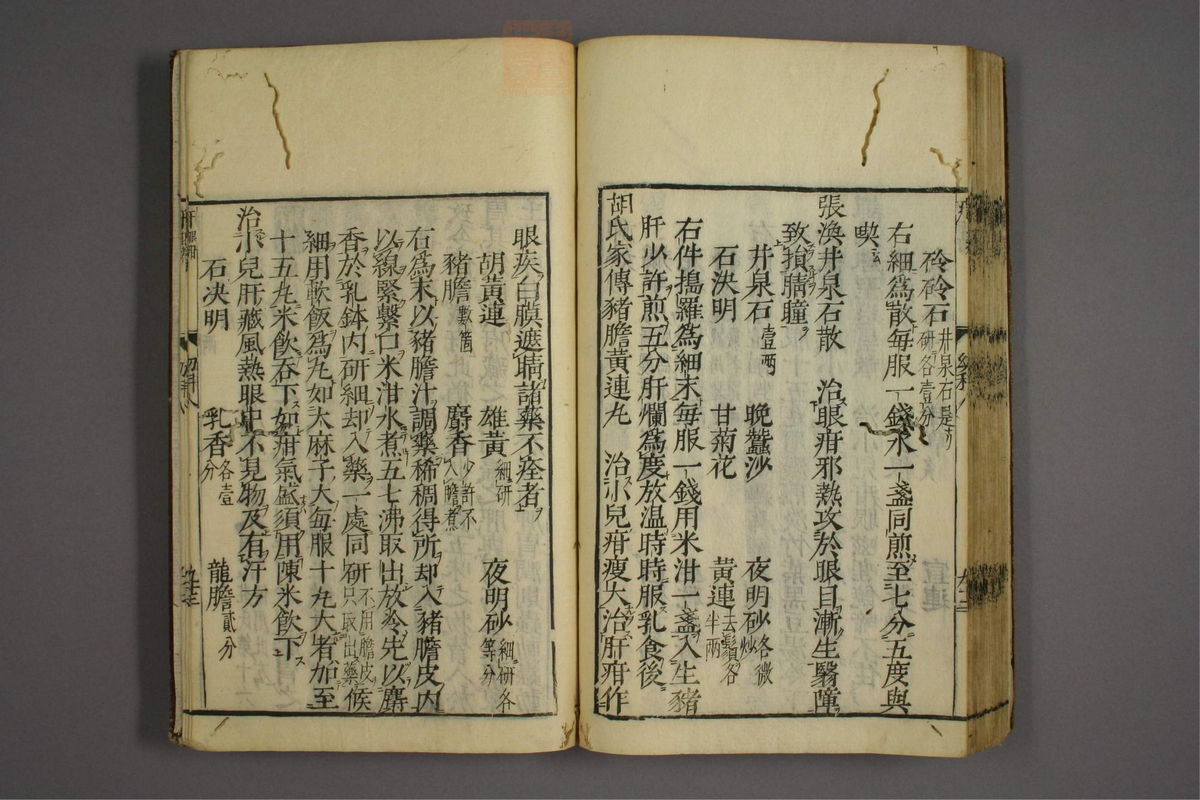 砱砱石井泉石是方研各壹分
右細為散每服一錢水一盞同煎至七分五度與
喫
張渙井泉石散 治眼疳邪熱攻於眼目漸生翳障
致損睛瞳
井泉石壹兩 晚蠶沙 夜明砂各微炒
石決明 甘菊花 黃連去鬚各半兩
右件搗羅為細末每服一錢用米泔一盞入生豬
肝少許煎五分肝爛為度放温時時服乳食後
胡氏家傳豬膽黃連丸 治小兒疳瘦大治肝疳作
眼疾白膜遮睛諸藥不痊者
胡黃連 雄黃細研 夜明砂細研各等分
豬膽數箇 麝香少許不入膽煮
右為末以豬膽汁調藥稀稠得所却入豬膽皮内
以線緊繫口米泔水煮五七沸取出放冷先以麝
香於乳鉢内研細却入藥一處同研不用膽皮只取出藥候
細用軟飯為丸如大麻子大每服十丸大者加至
十五丸米飲吞下如疳氣盛須用陳米飲下
治小兒肝藏風熱眼中不見物及有汗方
石决明 乳香各壹分 龍膽貳分